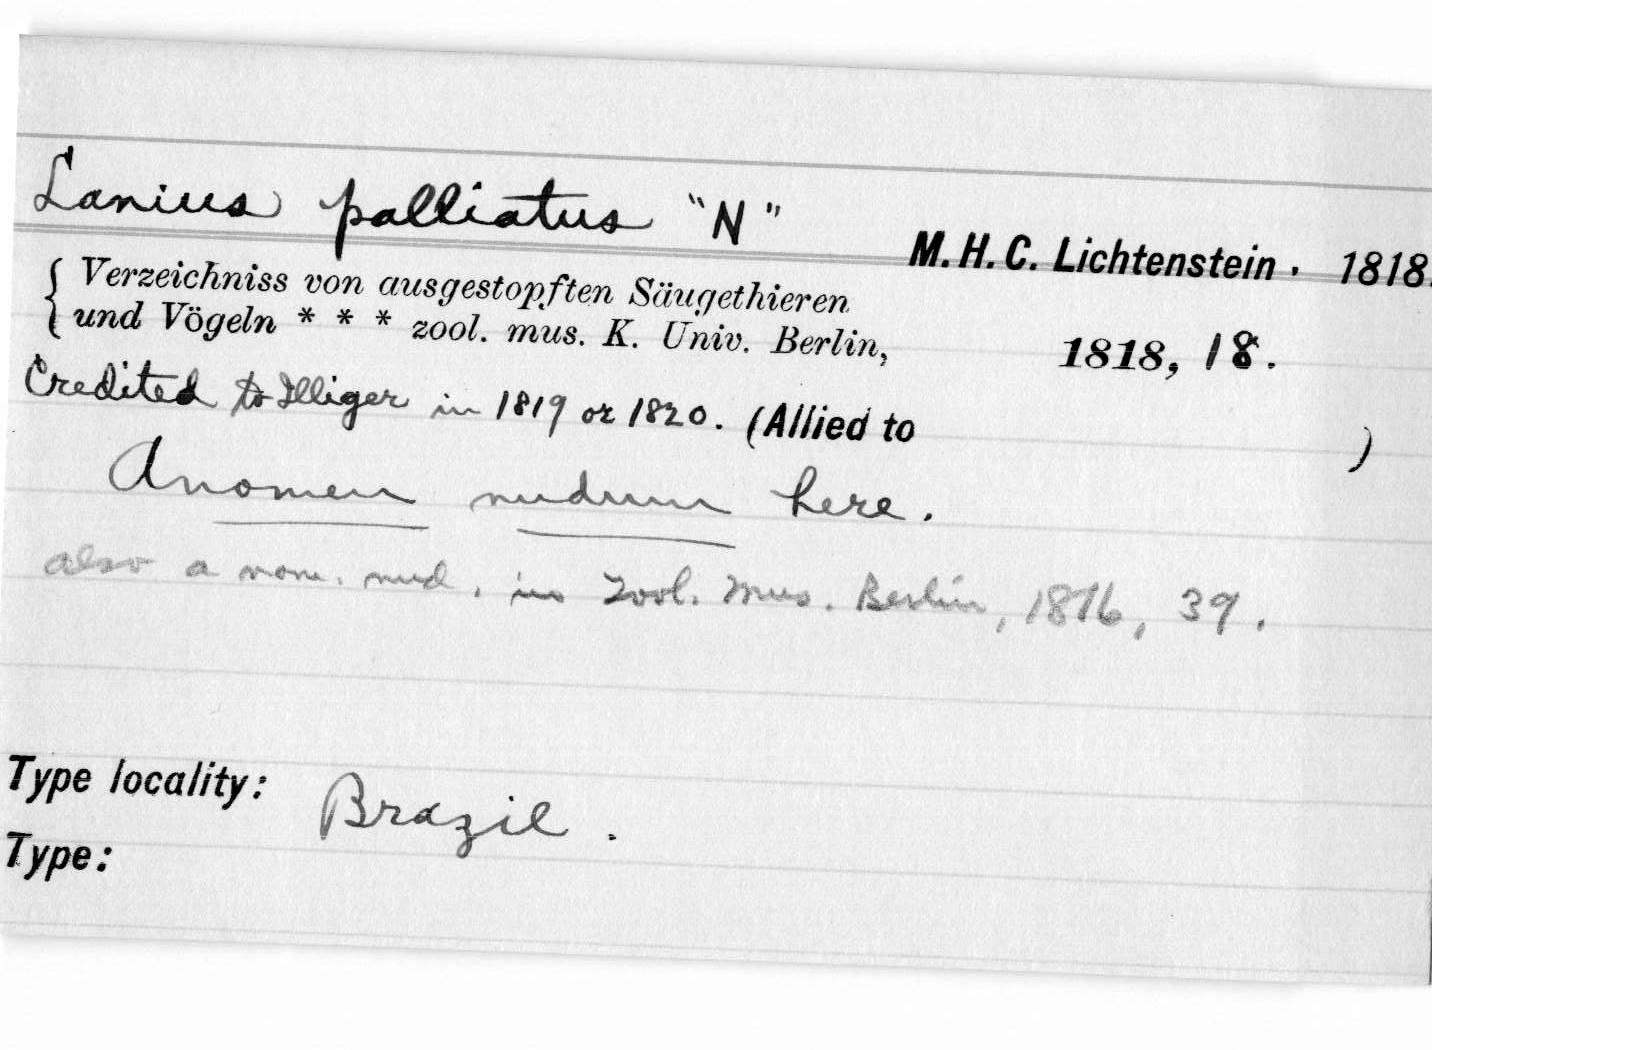 Lanius palliatus "N" M. H. C. Lichtenstein. 1818.
{ Verzeichniss von ausgestopften Säugethieren
{ und Vögeln * * * zool. mus. K. Univ. Berlin, 1818, 18.
Credited to Illiger in 1819 or 1820. (Allied to )
A nomen nudum here.
also a nom. nud. in Zool. Mus. Berlin, 1816, 39.
Type locality: Brazil.
Type: